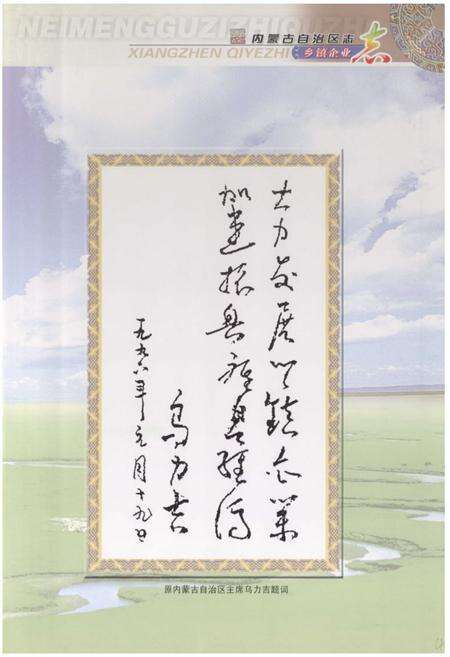 NEIMENGGUZIZHIQUZHI
内蒙古自治区志
XIANGZHEN QIYEZHI
乡镇企业 志
大力发展乡镇企業
加速振兴旗县经济
乌力吉
一九九六年元月十九日
原内蒙古自治区主席乌力吉题词